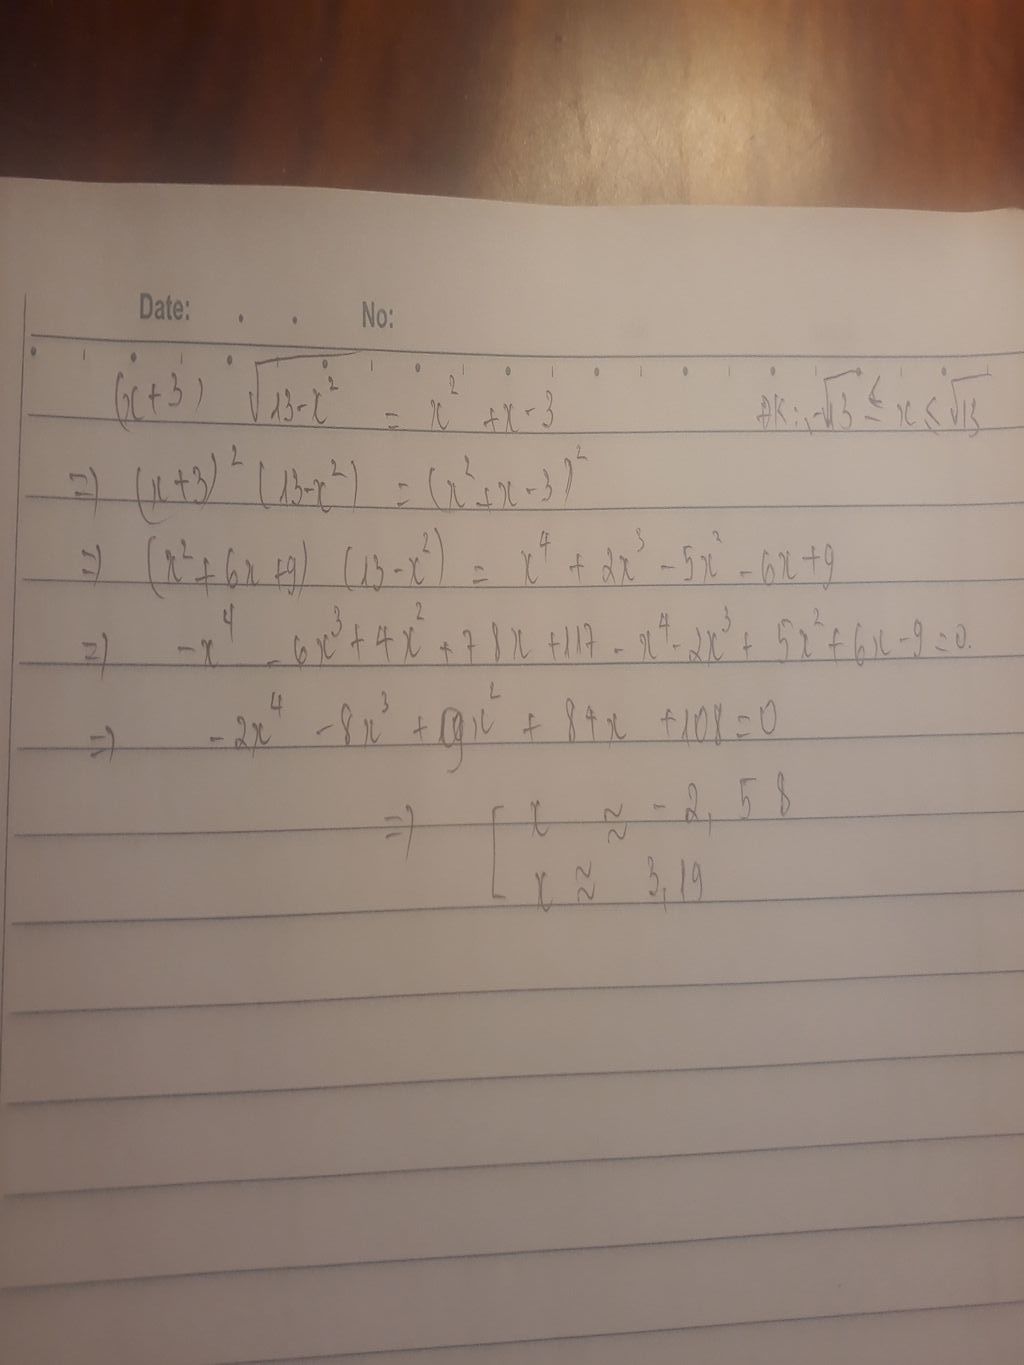 Date: . . No:
(x+3) √(13-x²) = x² + x - 3 ĐK: -√13 ≤ x ≤ √13
=) (x+3)² (13-x²) = (x²+x-3)²
=) (x²+6x+9) (13-x²) = x⁴ + 2x³ - 5x² - 6x + 9
=) -x⁴ - 6x³ + 4x² + 78x + 117 - x⁴ - 2x³ + 5x² + 6x - 9 = 0.
=) -2x⁴ - 8x³ + 9x² + 84x + 108 = 0
=) [ x ≈ -2,58
x ≈ 3,19